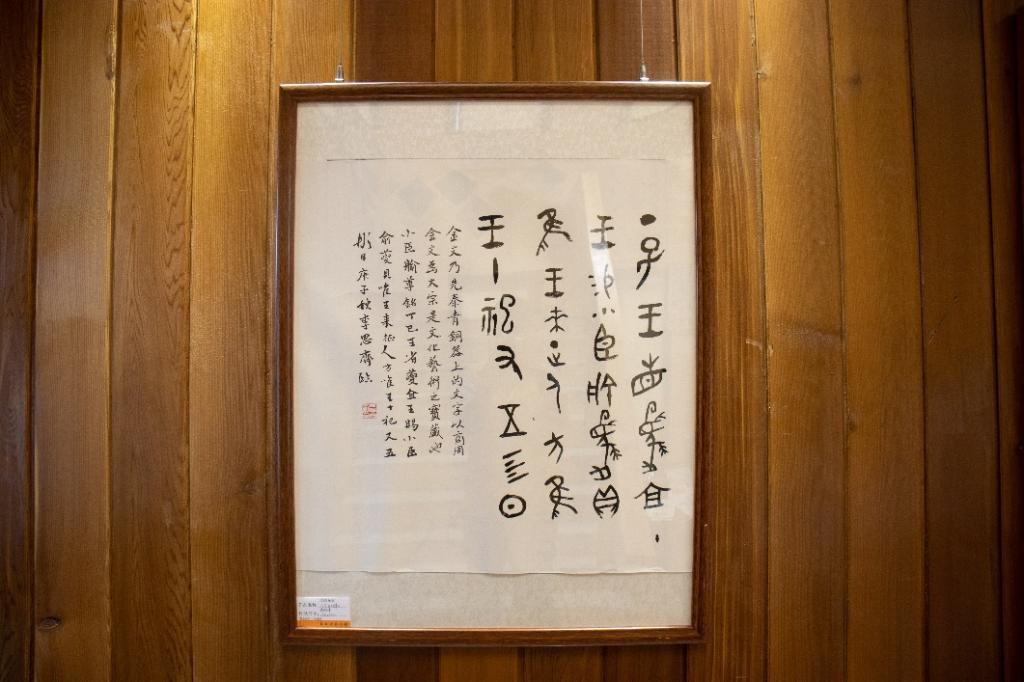 丁巳王省夔且
王易小臣艅夔貝
隹王來正人方隹
王十祀又五肜日
金文乃先秦青銅器上的文字以商周
金文為大宗是文化藝術之寶藏也
小臣艅尊銘丁巳王省夔且王賜小臣
俞夔貝唯王來征人方唯王十祀又五
肜日庚子秋李思齊臨